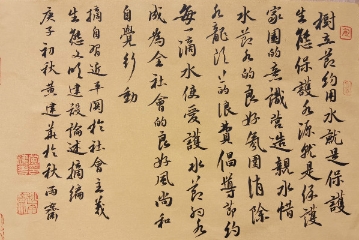 樹立節約用水就是保護
生態保護水源就是保護
家園的意識營造親水惜
水節水的良好氛圍消除
水龍頭上的浪費倡導節約
每一滴水使愛護水節約水
成為全社會的良好風尚和
自覺行動
摘自習近平關於社會主義
生態文明建設論述摘編
庚子初秋黃建華於秋雨齋